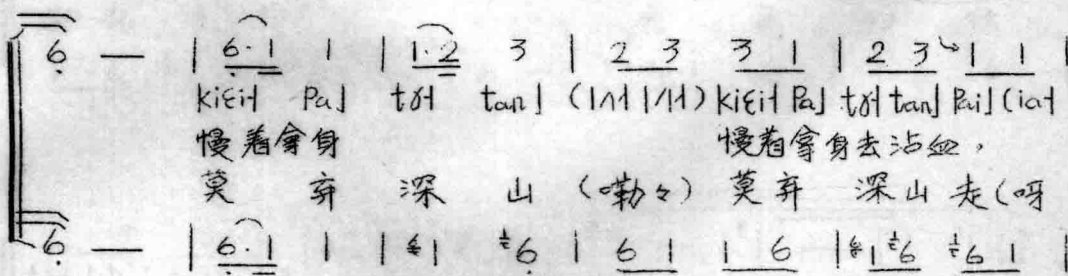 6̣ — | 6̣·1 1 | 1·2 3 | 2 3 3 1 | 2 3 1 1 |
kiɛi˧ Pa˩ tɤ˧ tan˩ (lʌ˧ lʌ˧) kiɛi˧ Pa˩ tɤ˧ tan˩ Pai˩ (ia˧
慢着拿身 慢着拿身去沾血，
莫弃深山（嘞々）莫弃深山走（呀
6̣ — | 6̣·1 1 | 1 6̣ | 6 1 1 6 | 1 6 6 1 |